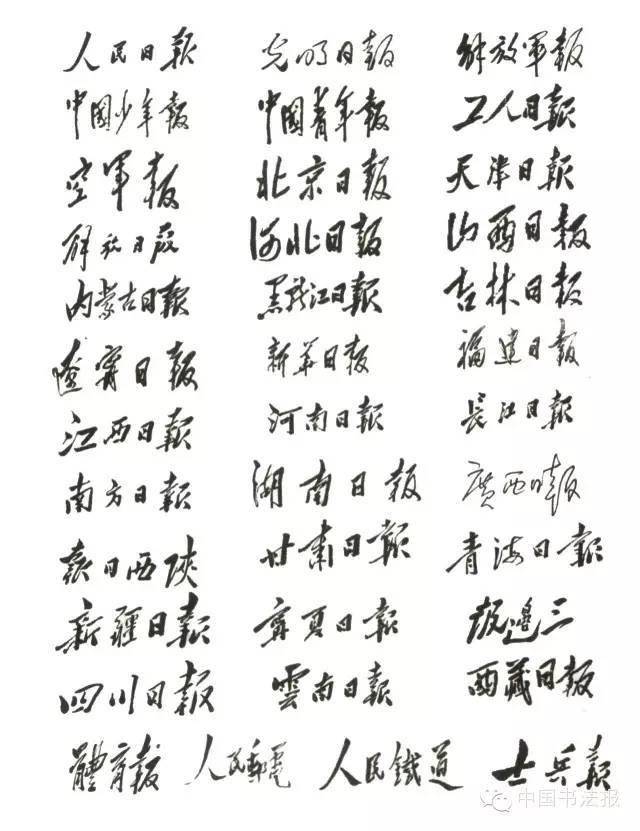 人民日報 光明日報 解放軍報
中國少年報 中國青年報 工人日報
空軍報 北京日報 天津日報
解放日報 河北日報 山西日報
内蒙古日報 黑龍江日報 吉林日報
遼寧日報 新華日報 福建日報
江西日報 河南日報 長江日報
南方日報 湖南日報 廣西日報
陝西日報 甘肅日報 青海日報
新疆日報 寧夏日報 三邊報
四川日報 雲南日報 西藏日報
體育報 人民郵電 人民鐵道 士兵報
中国书法报